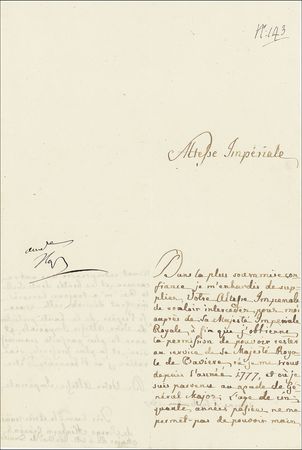 No. 143
Altesse Impériale
Dans la plus soummise con
fiance je m'enhardis de sup
plier Votre Altesse Imperiale
de vouloir interceder pour moi
auprès de Sa Majesté Imperiale
Royale, à fin que j'obtienne
la permission de pouvoir rester
au service de Sa Majesté Roya
le de Baviere, où je me trouve
depuis l'année 1777, et où je
suis parvenu au grade de Gé
néral Major; l'age de cin
quante années passées ne me
permet pas de pouvoir main